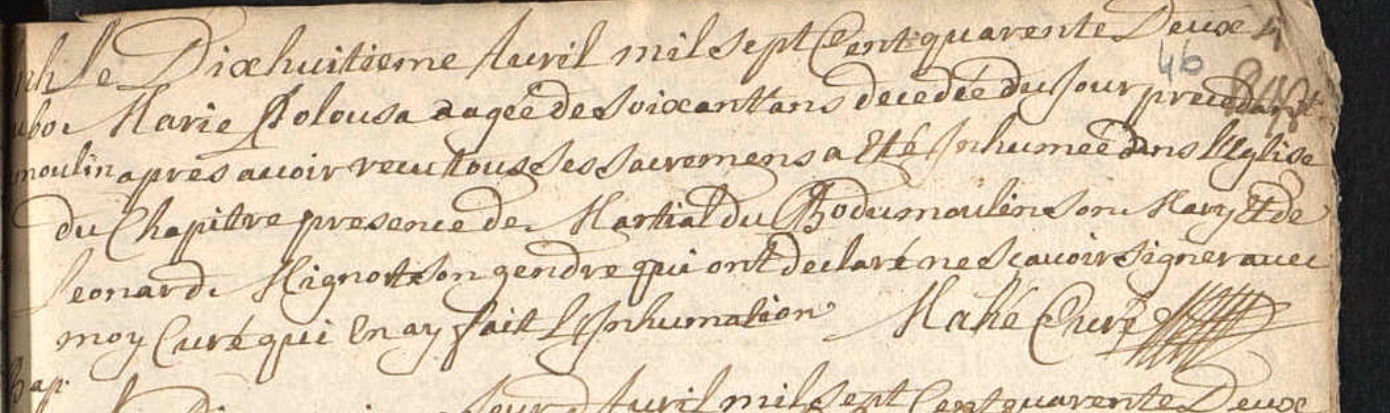 nh Le Dixhuitieme Avril mil sept Cent quarente Deux
46
Marie Polousa aagée de soixant ans decedée du Jour precedant
moulin apres avoir recu tous ses sacremens a Eté Inhumeé dans l'Eglise
du Chapitre presence de Martial du Bodumoulin son Mary Et de
Leonard Mignot son gendre qui ont declaré ne scavoir signer avec
moy Curé qui En ay fait L'Inhumation Mahé Curé
Bap.
Jour Avril mil sept Cent quarente Deux